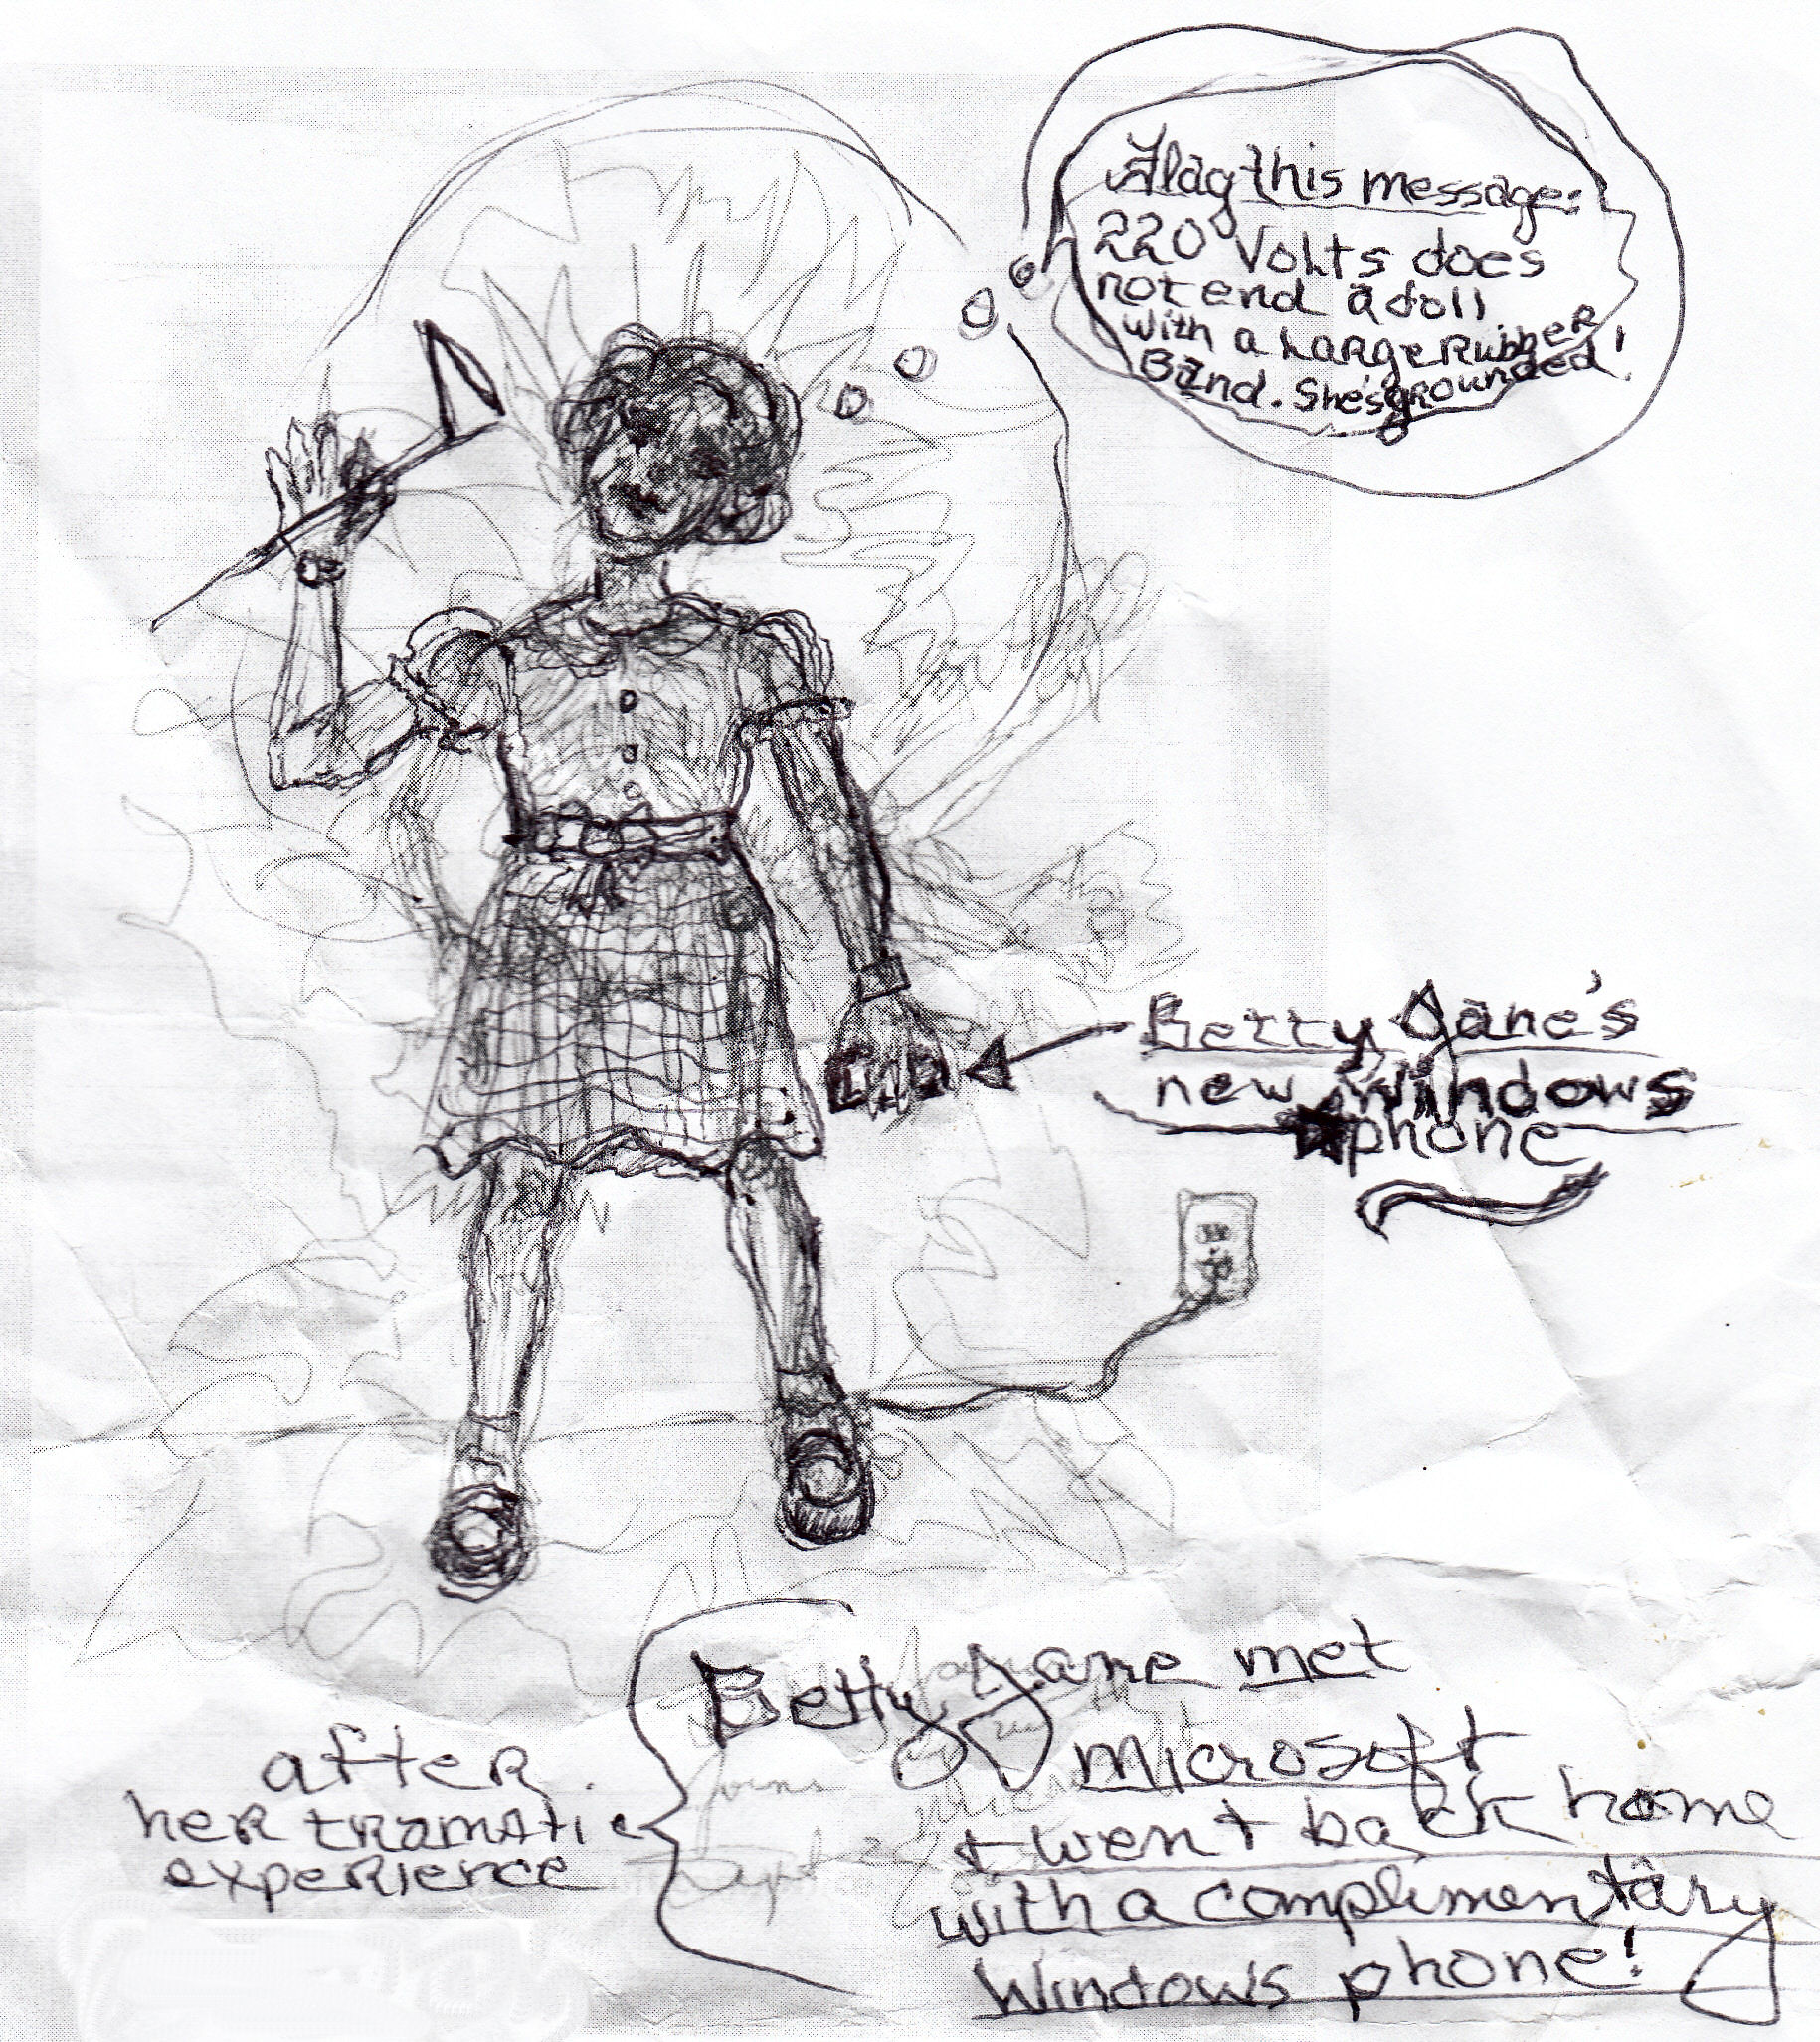 Flag this message:
220 Volts does
not end a doll
with a Large Rubber
Band. She's grounded!
Betty Jane's
new Windows
phone
Betty Jane met
Microsoft
& went back home
with a complimentary
Windows phone!
after
her tramatic
experience